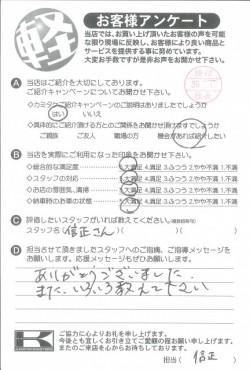 軽
お客様アンケート
当店では、お買い上げ頂いたお客様の声を可能な限り現場に反映し、お客様により良い商品とサービスを提供する事に努めています。
大変お手数ですが是非お声をお聞かせ下さい。
A 当店はご紹介を大切にしております。
ご紹介キャンペーンについてお聞かせ下さい
はい いいえ
ご親族 ご友人 職場の方 機会があれば紹介したい
B 当店を実際にご利用になった印象をお聞かせ下さい。
総合的な満足度 5.大満足 4.満足 3.ふつう 2.やや不満 1.不満
スタッフの対応 5.大満足 4.満足 3.ふつう 2.やや不満 1.不満
お店の雰囲気、清掃 5.大満足 4.満足 3.ふつう 2.やや不満 1.不満
納車時のお車の状態 5.大満足 4.満足 3.ふつう 2.やや不満 1.不満
C 評価したいスタッフがいれば教えてください。(複数回答可)
スタッフ名(信正さん)( )( )
D 担当させて頂きましたスタッフへのご指摘、ご指導メッセージをお願いします。応援メッセージもぜひお願いします。
ありがとうございました。
また、いろいろ教えて下さい
K
ご協力に心よりお礼を申し上げます。
今後とも宜しくお引き立てご愛顧の程お願い申し上げます。
またのご来店を心からお待ちしております。
担当( 信正 )